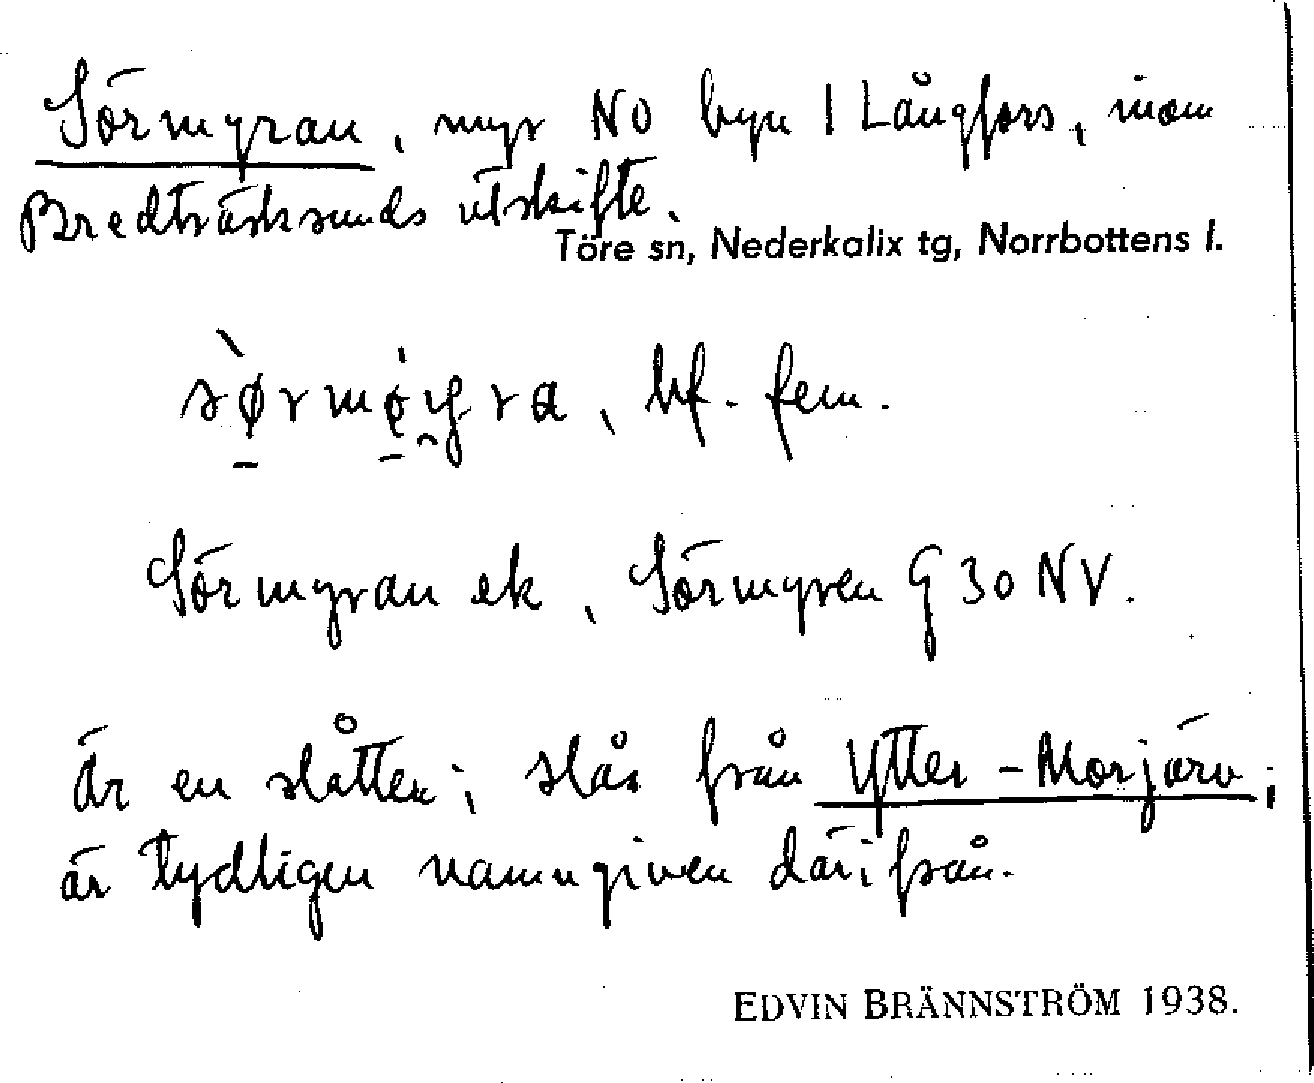 Sörmyran, myr NO byn 1 Långfors, inom
Bredträsksunds utskifte.
Töre sn, Nederkalix tg, Norrbottens l.
bf. fem.
Sörmyran ek, Sörmyren G 30 NV.
Är en slåtter; slås från Ytter-Morjärv;
är tydligen namngiven därifrån.
EDVIN BRÄNNSTRÖM 1938.